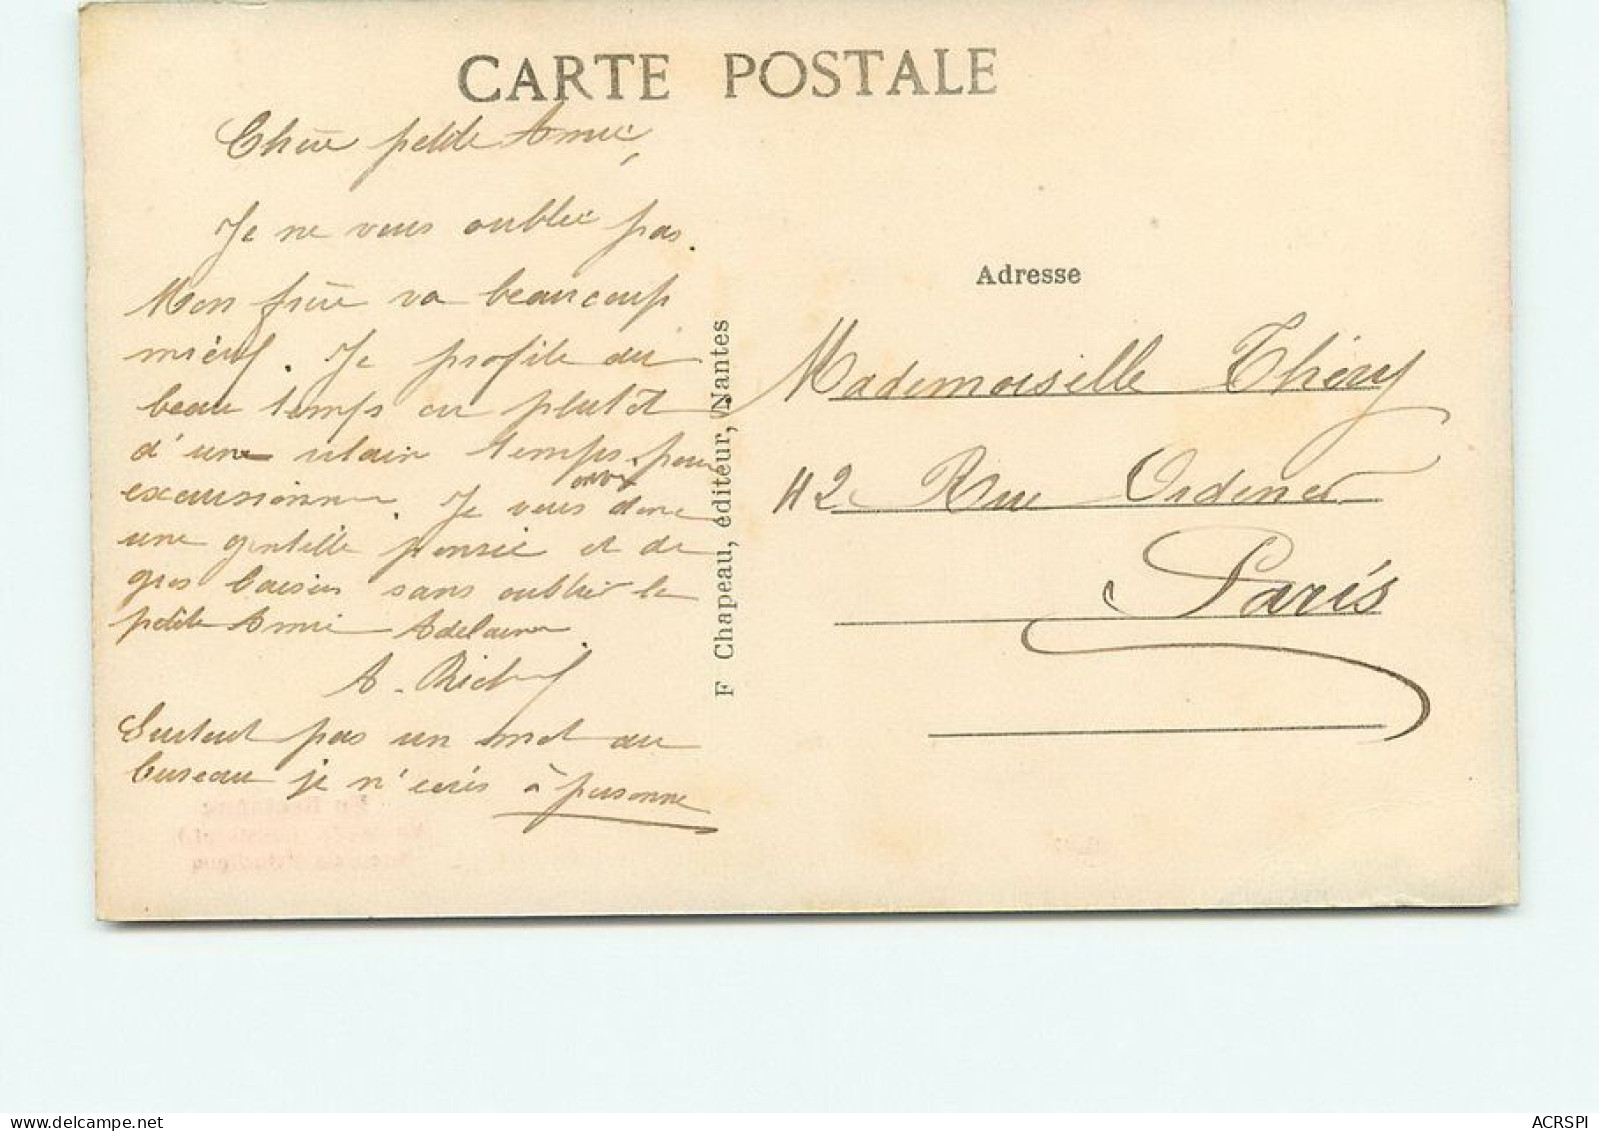 CARTE POSTALE
Chère petite Amie,
Je ne vous oublie pas.
Mon frère va beaucoup
mieux. Je profite du
beau temps ou plutôt
d'un temps pour
excursionner. Je vous
envoie
une gentille pensée et de
gros baisers sans oublier la
petite Amie
A.
Surtout pas un mot au
bureau je n'écris à personne
F Chapeau, éditeur, Nantes
Adresse
Mademoiselle Théry
112 Rue Ordener
Paris
ACRSPI